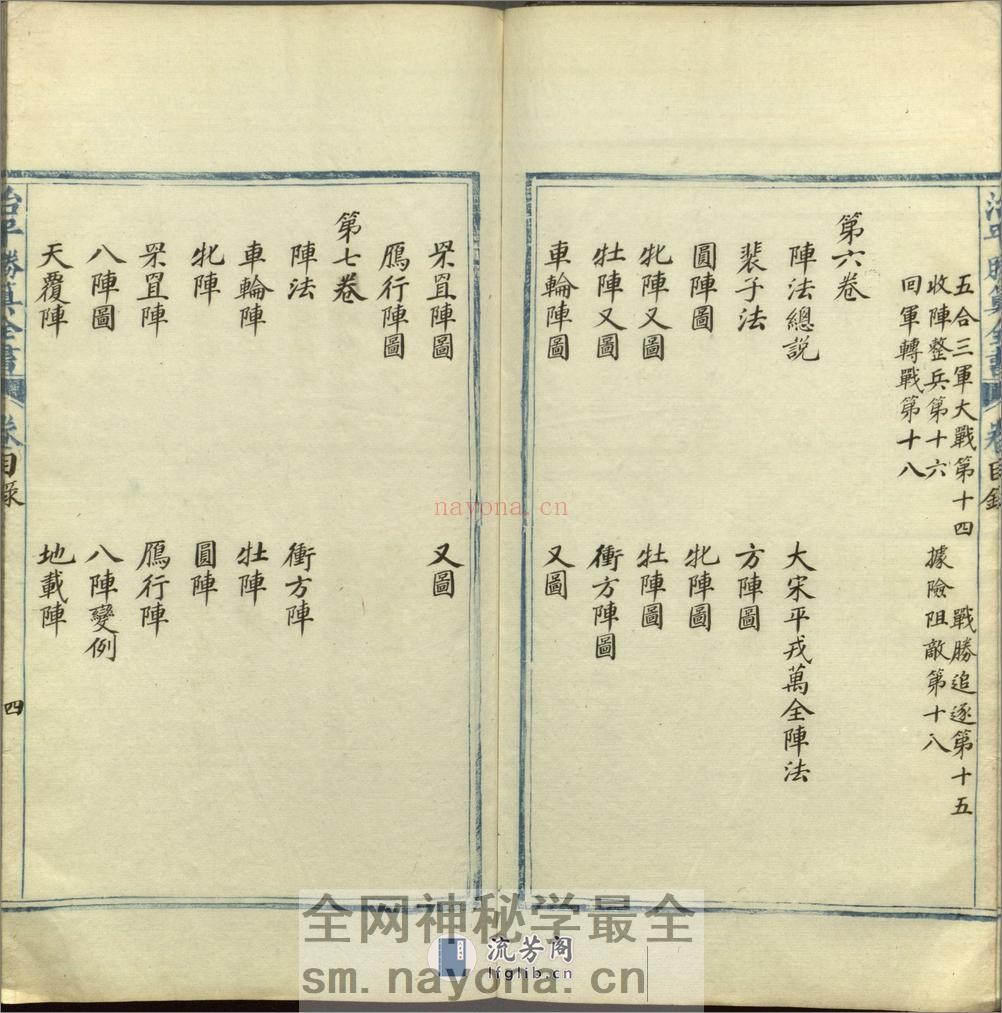 五合三軍大戰第十四　戰勝追逐第十五
收陣整兵第十六　據險阻敵第十八
回軍轉戰第十八
第六卷
陣法總說　大宋平戎萬全陣法
裴子法　方陣圖
圓陣圖　牝陣圖
牝陣又圖　牡陣圖
牡陣又圖　衝方陣圖
車輪陣圖　又圖
罘罝陣圖　又圖
鴈行陣圖
第七卷
陣法　衝方陣
車輪陣　牡陣
牝陣　圓陣
罘罝陣　鴈行陣
八陣圖　八陣變例
天覆陣　地載陣
治平勝算全書　卷目錄
治平勝算全書　卷目錄　四
nayona.cn
全网神秘学最全
流芳阁
lfglib.cn
sm.nayona.cn